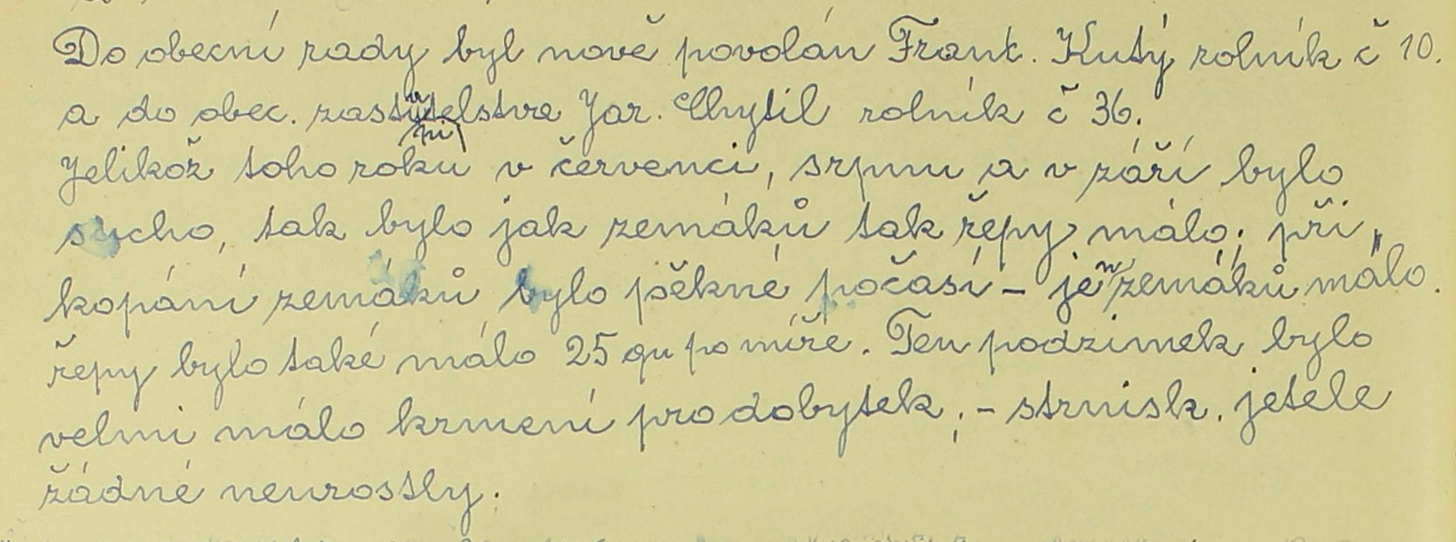 Do obecní rady byl nově povolán Frant. Kutý rolník č 10.
a do obec. zastupitelstva Jar. Chytil rolník č 36.
Jelikož toho roku v červenci, srpnu a v září bylo
sucho, tak bylo jak zemáků tak řepy málo; při
kopání zemáků bylo pěkné počasí – jen zemáků málo.
řepy bylo také málo 25 qu po míře. Ten podzimek bylo
velmi málo krmení pro dobytek; – strnisk. jetele
žádné neurostly.